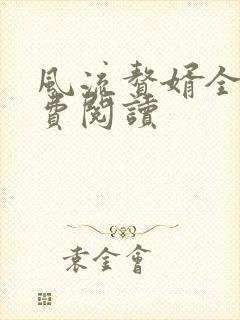 風流贅婿全
費閱讀
袁金會